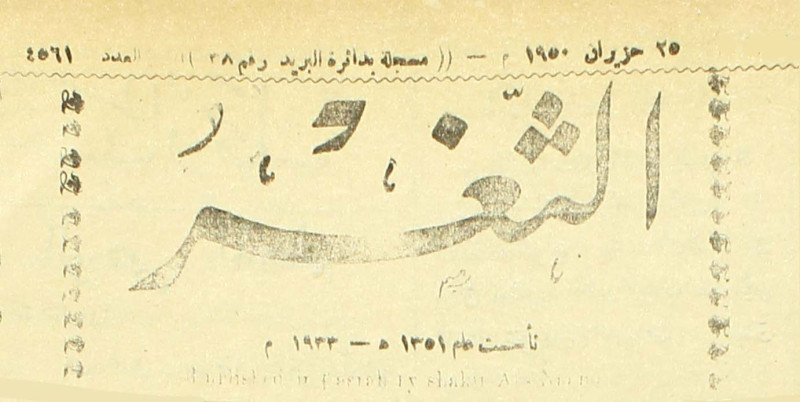 ٢٥ حزيران ١٩٥٠ م — (( مسجلة بدائرة البريد رقم ٣٨ )) العدد ٤٥٦١
الثغر
تأسست عام ١٣٥١ ه — ١٩٣٣ م